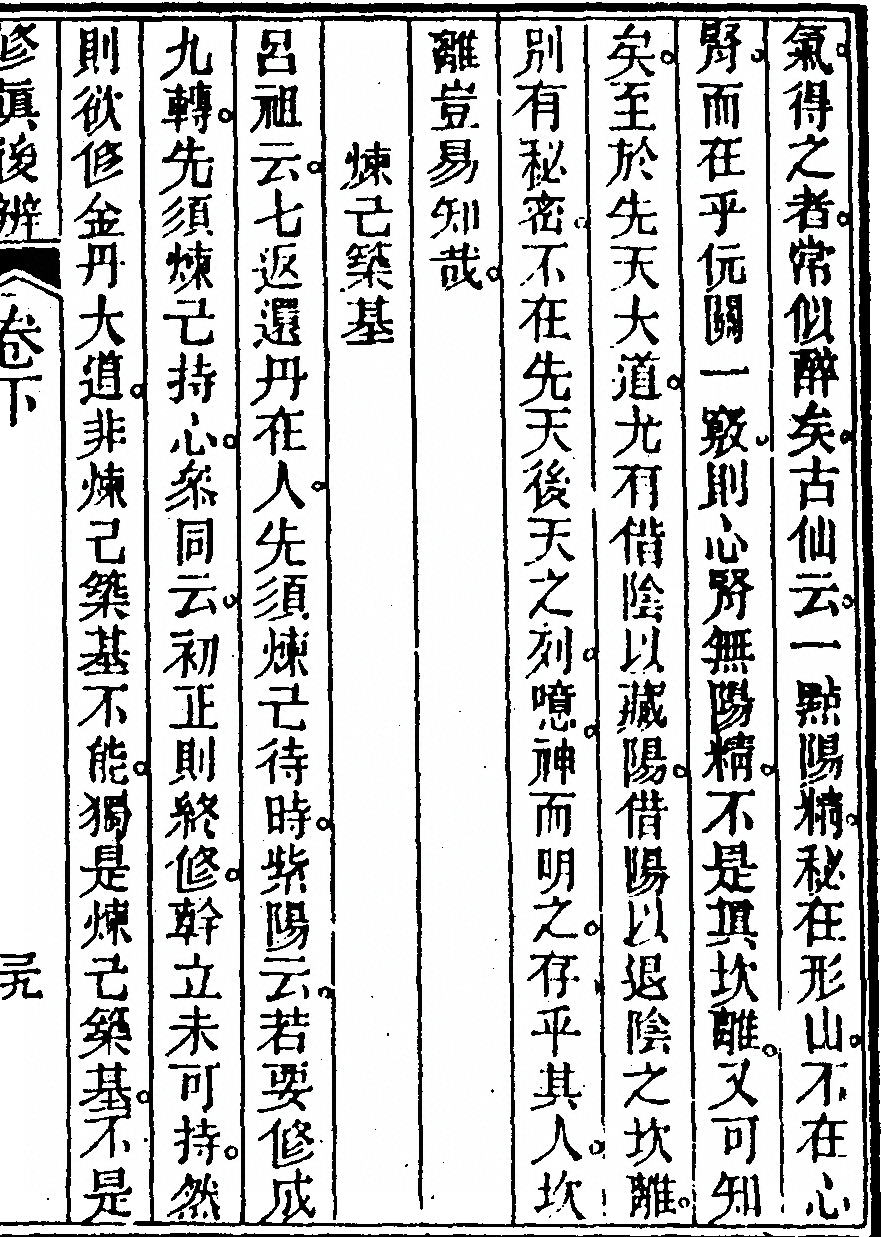 氣。得之者。常似醉矣。古仙云。一點陽精。秘在形山。不在心
腎。而在乎㐾關一竅。則心腎無陽精。不是眞坎離。又可知
矣。至於先天大道。尤有借陰以藏陽。借陽以退陰之坎離。
別有秘密。不在先天後天之列。噫。神而明之。存乎其人。坎
離豈易知哉。
煉己築基
呂祖云。七返還丹在人。先須煉己待時。紫陽云。若要修成
九轉。先須煉己持心。參同云。初正則終修。幹立未可持。然
則欲修金丹大道。非煉己築基不能。獨是煉己築基。不是
修眞後辨
卷下